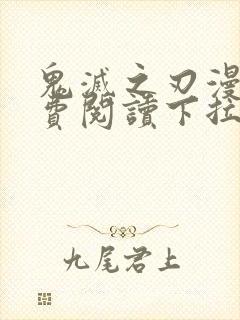 鬼滅之刃漫
費閱讀下拉
九尾君上